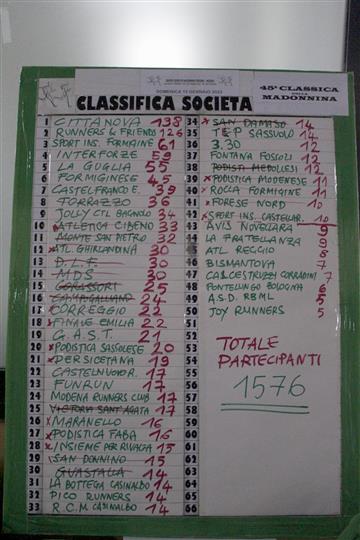 DOMENICA 15 GENNAIO 2023
45ª CLASSICA
DELLA
MADONNINA
CLASSIFICA SOCIETA
1 CITTANOVA 138
2 RUNNERS & FRIENDS 126
3 SPORT INS. FORMIGINE 61
4 INTERFORZE 59
5 LA GUGLIA 55
6 FORMIGINESE 45
7 CASTELFRANCO E. 39
8 TORRAZZO 36
9 JOLLY CTL BAGNOLO 34
10 ATLETICA CIBENO 33
11 MONTE SAN PIETRO 32
12 ATL. GHIRLANDINA 30
13 D.L.F. 30
14 MDS 30
15 CORASSORI 25
16 CAMPAGALLIANO 24
17 CORREGGIO 22
18 FINALE EMILIA 22
19 G.A.S.T. 21
20 PODISTICA SASSOLESE 20
21 PERSICETANA 19
22 CASTELNUOVO R. 17
23 FUNRUN 17
24 MODENA RUNNERS CLUB 17
25 VICTORIA SANT'AGATA 17
26 MARANELLO 16
27 PODISTICA FABA 16
28 INSIEME PER RIVALTA 15
29 SAN DONNINO 15
30 GUASTALLA 14
31 LA BOTTEGA CASINALBO 14
32 PICO RUNNERS 14
33 R.C.M CASINALBO 14
34 SAN DAMASO 14
35 T&P SASSUOLO 14
36 3.30 12
37 FONTANA FOSCOLI 12
38 PODISTI MEDOLLESI 12
39 PODISTICA MODENESE 11
40 ROCLA FORMIGINE 11
41 FORESE NORD 10
42 SPORT INS. CASTELLAR. 10
43 AVIS NOVELLARA 9
44 LA FRATELLANZA 9
45 ATL REGGIO 8
46 BISMANTOVA 7
47 CALCESTRUZZI CORRADINI 7
48 PONTELUNGO BOLOGNA 6
49 A.S.D. RBML 5
50 JOY RUNNERS 5
51
52 TOTALE
53
54 PARTECIPANTI
55
56 1576
57
58
59
60
61
62
63
64
65
66